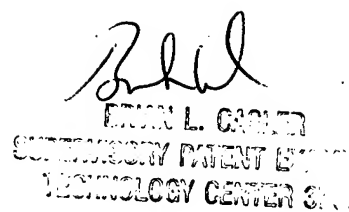 BRIAN L. CASLER
SUPERVISORY PATENT EX
TECHNOLOGY CENTER 3